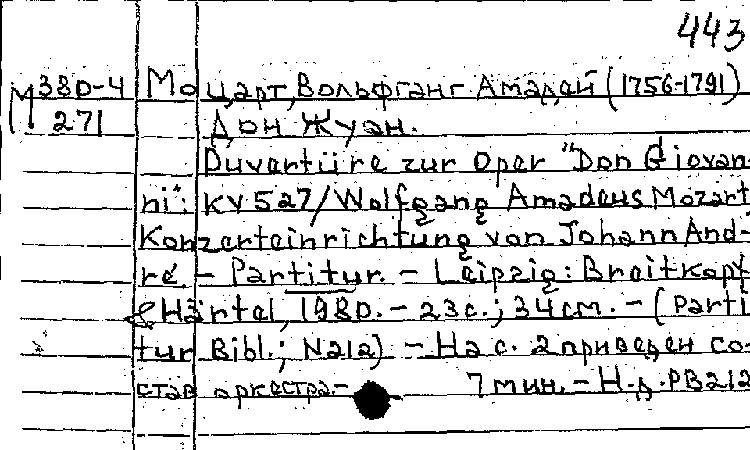 443
М 380-4 Моцарт, Вольфганг Амадей (1756-1791)
271 Дон Жуан.
Ouvertüre zur Oper "Don Giovan-
ni": KV 527/Wolfgang Amadeus Mozart
Konzerteinrichtung von Johann And-
ré - Partitur. - Leipzig: Breitkopf
& Härtel, 1980. - 23 c.; 34 см. - (Parti
tur Bibl.; На с. 2 приведен со-
став оркестра. - 7 мин. - Н.д. PB212